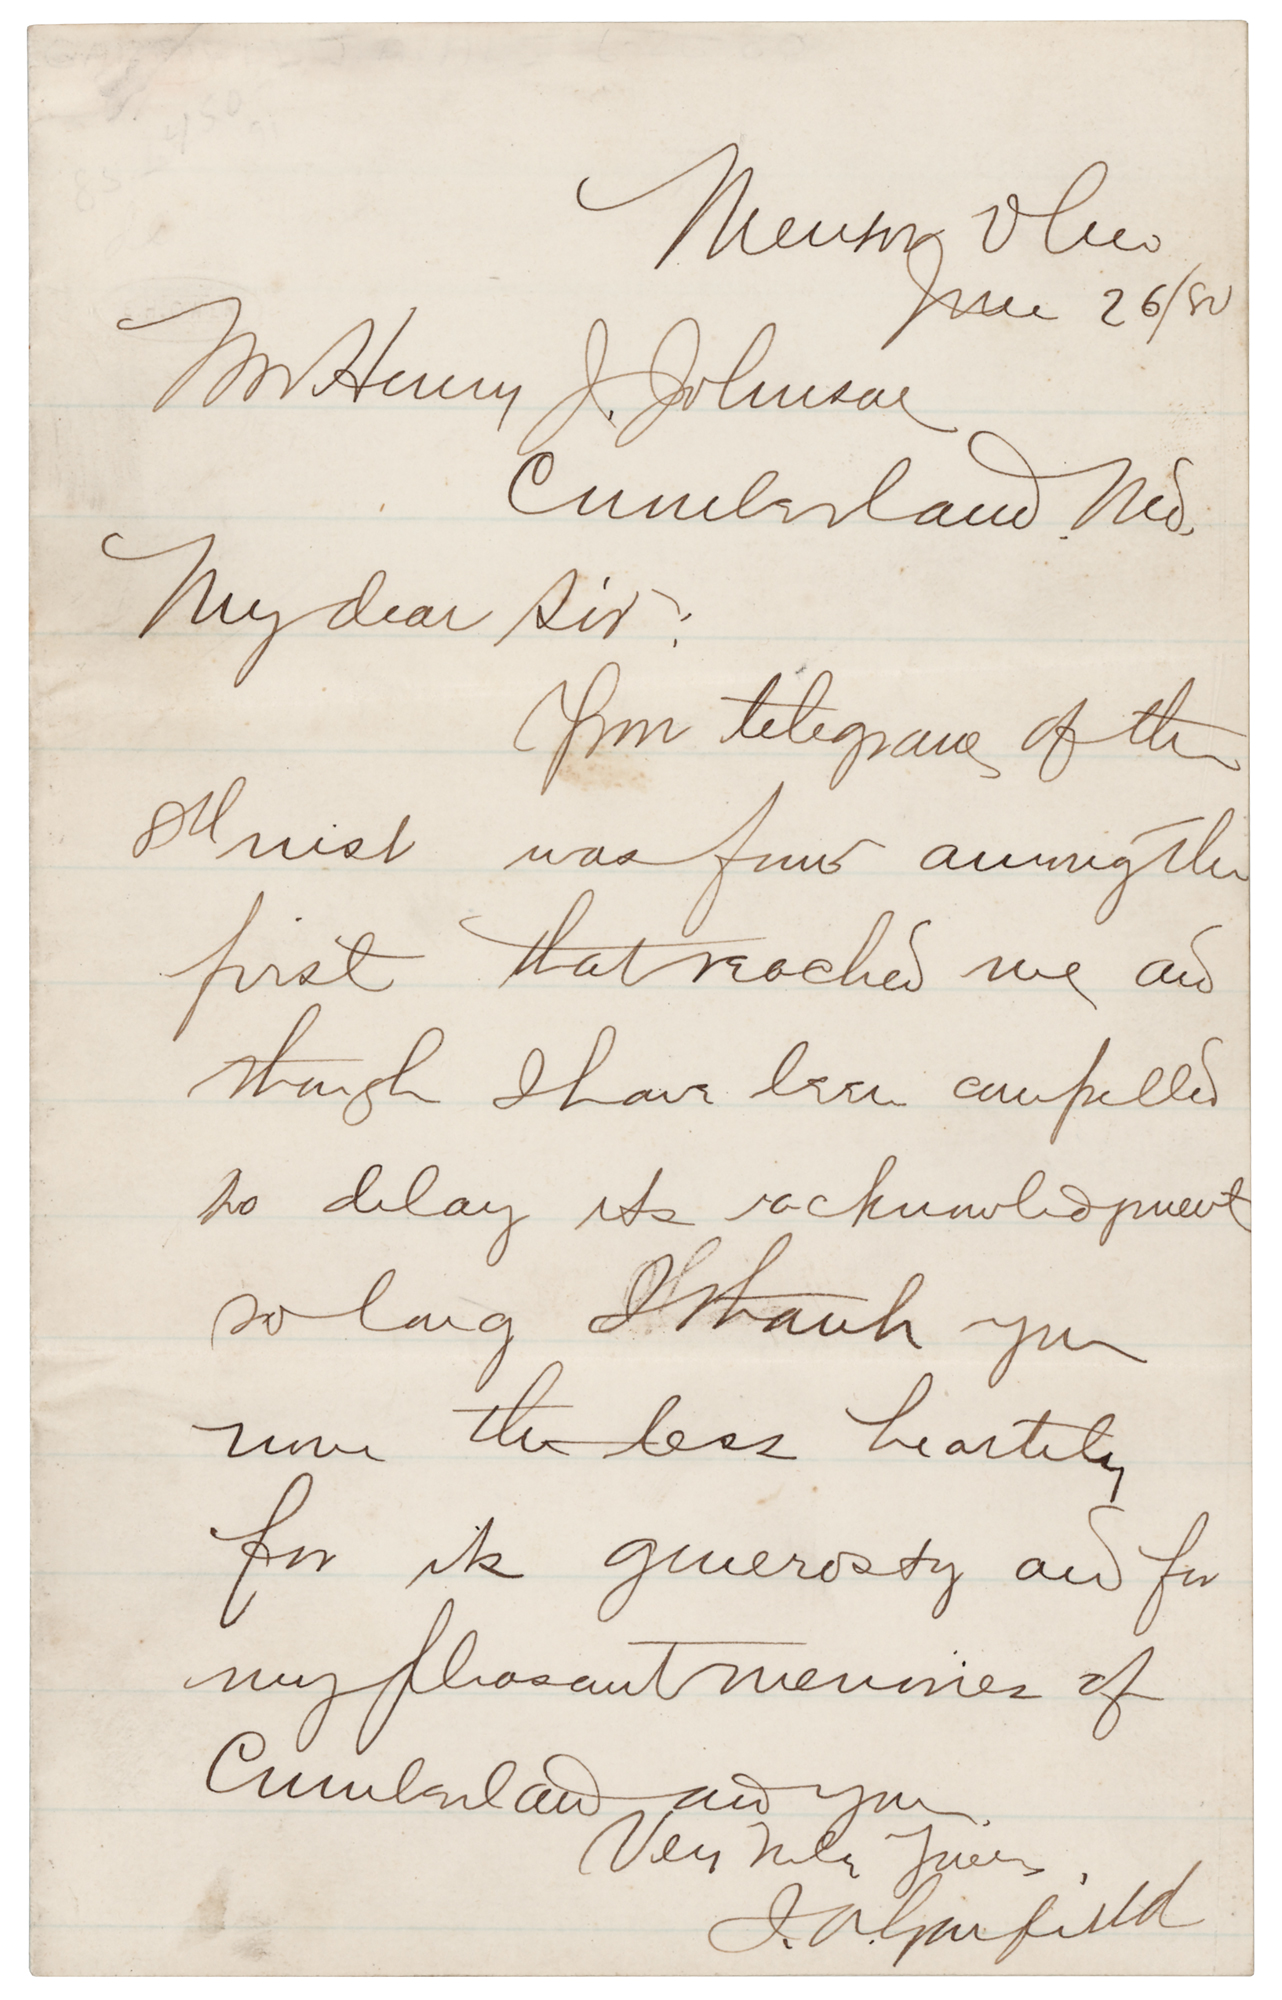 Mentor Ohio
June 26/80
Mr Henry J. Johnson
Cumberland. Md.
My dear Sir:
Your telegram of the
8th inst was four among the
first that reached me and
though I have been compelled
to delay its acknowledgment
so long I thank you
none the less heartily
for its generosty and for
my pleasant memories of
Cumberland and you.
Very truly Yours,
J. A. Garfield